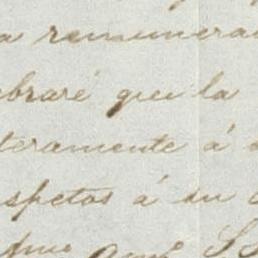 a remunera
braré que la
teramente á
spetos á su